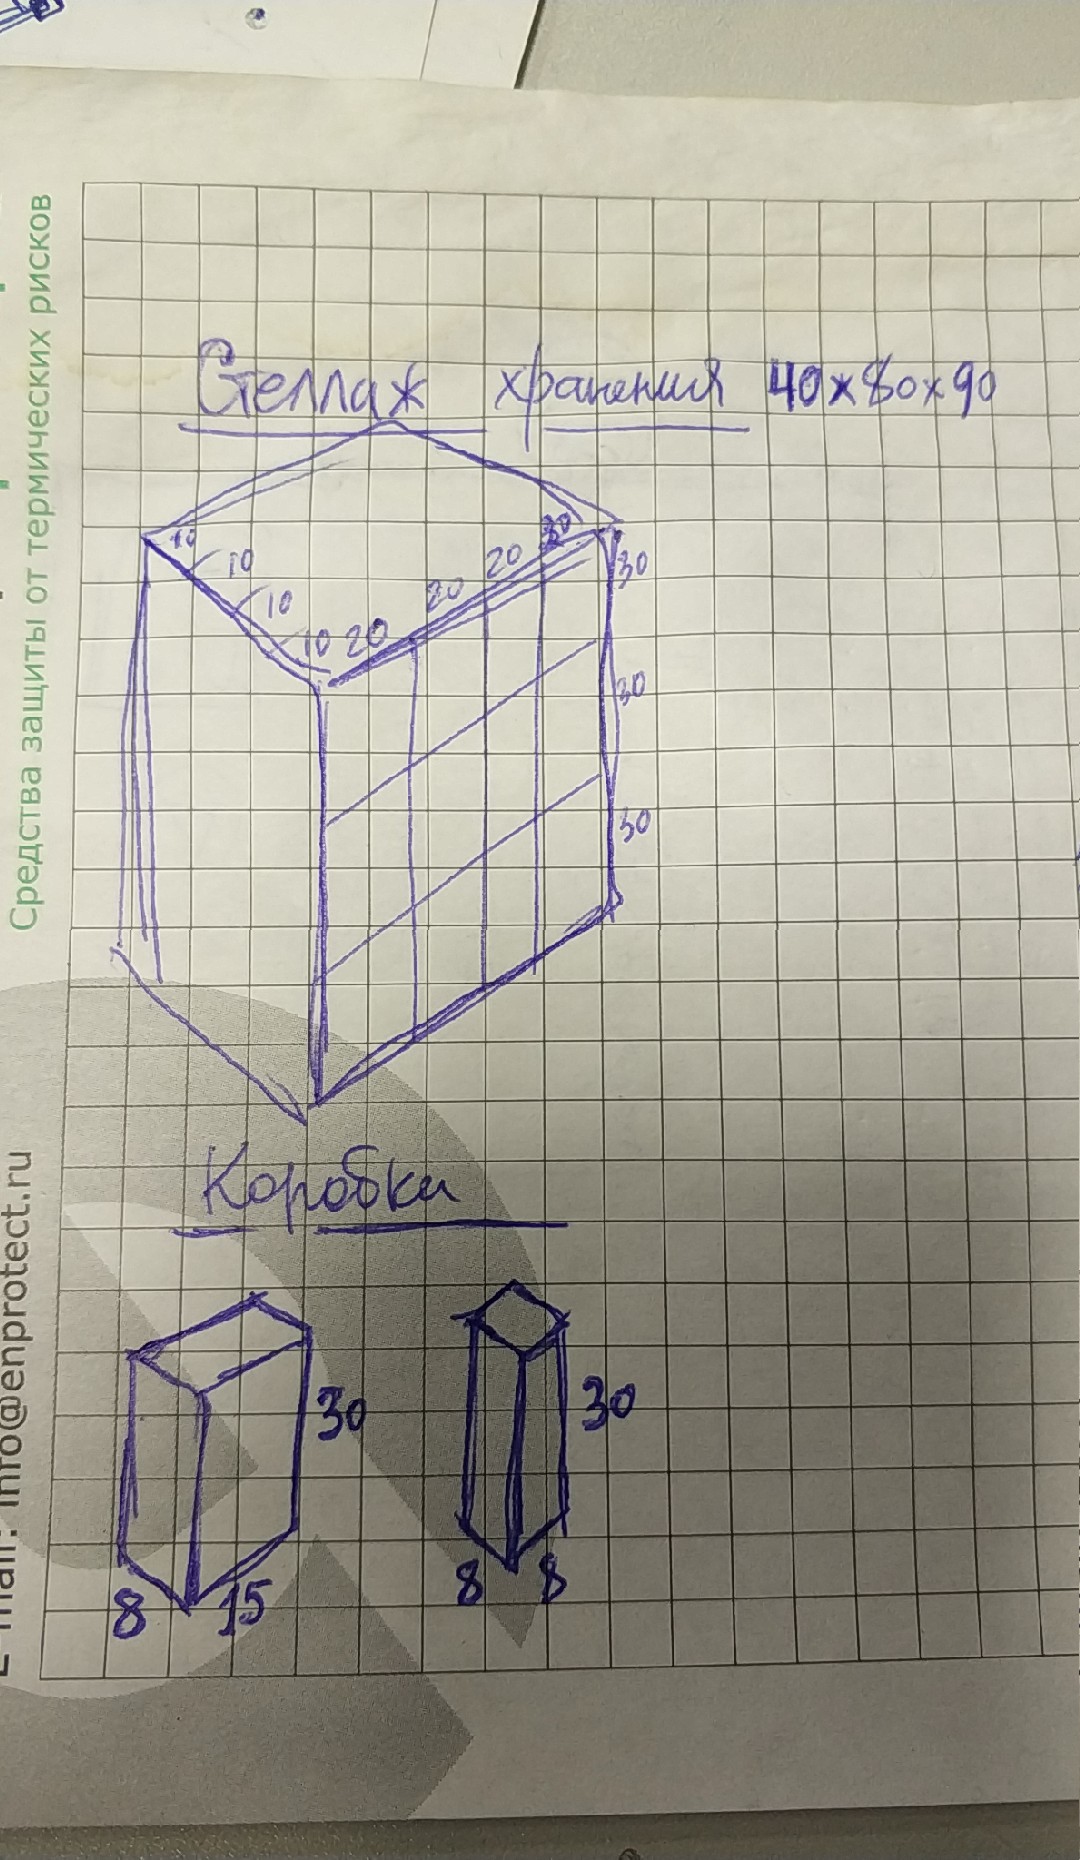 Средства защиты от термических рисков
E-mail: info@enprotect.ru
Стеллаж хранения 40х80х90
10 10 10 10
20 20 20
30
30
30
Коробки
30
8 15
30
8 8